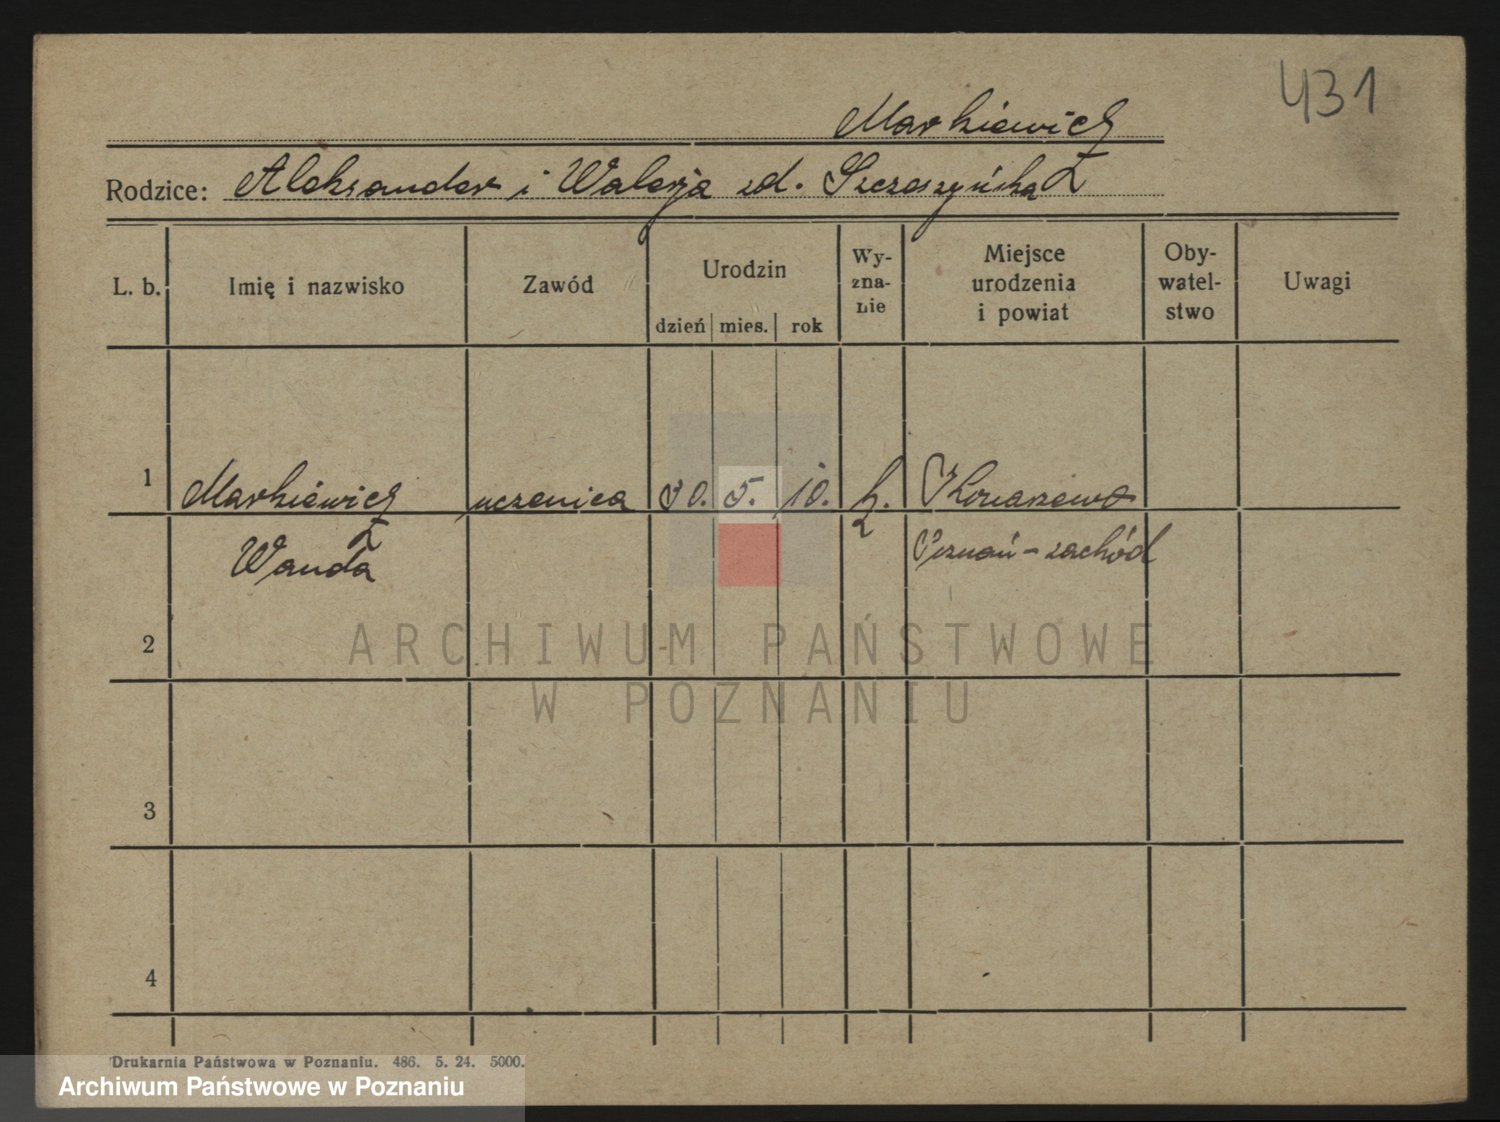 431
Markiewicz
Rodzice: Aleksander i Walerja zd. Szczeszyńska
L. b. Imię i nazwisko Zawód Urodzin dzień mies. rok Wy-zna-nie Miejsce urodzenia i powiat Oby-watel-stwo Uwagi
1 Markiewicz uczenica 30. 5. 10. k. Konarzewo
Wanda Poznań-zachód
2
3
4
ARCHIWUM PAŃSTWOWE
W POZNANIU
Drukarnia Państwowa w Poznaniu. 486. 5. 24. 5000.
Archiwum Państwowe w Poznaniu